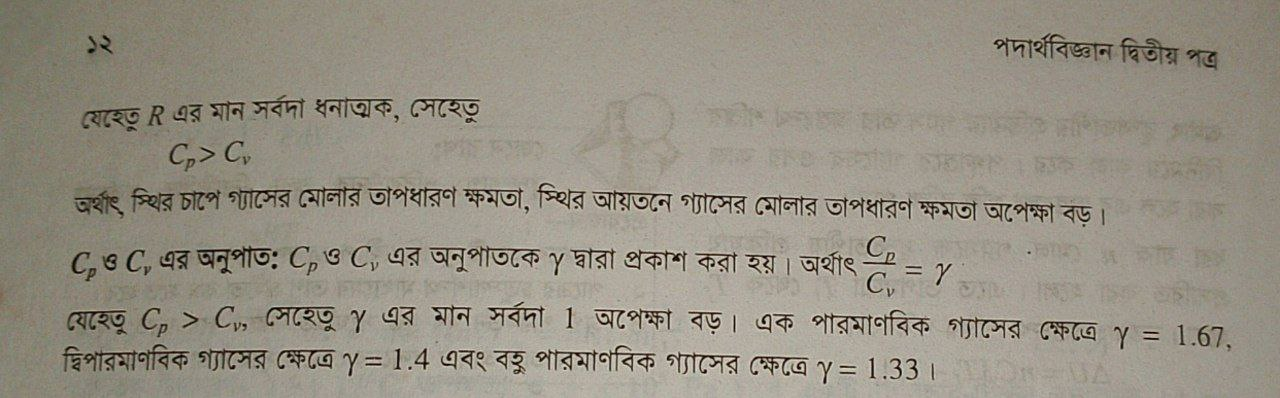 ১২
পদার্থবিজ্ঞান দ্বিতীয় পত্র
যেহেতু R এর মান সর্বদা ধনাত্মক, সেহেতু
Cₚ > Cᵥ
অর্থাৎ, স্থির চাপে গ্যাসের মোলার তাপধারণ ক্ষমতা, স্থির আয়তনে গ্যাসের মোলার তাপধারণ ক্ষমতা অপেক্ষা বড়।
Cₚ ও Cᵥ এর অনুপাত: Cₚ ও Cᵥ এর অনুপাতকে γ দ্বারা প্রকাশ করা হয়। অর্থাৎ Cₚ/Cᵥ = γ
যেহেতু Cₚ > Cᵥ, সেহেতু γ এর মান সর্বদা 1 অপেক্ষা বড়। এক পারমাণবিক গ্যাসের ক্ষেত্রে γ = 1.67,
দ্বিপারমাণবিক গ্যাসের ক্ষেত্রে γ = 1.4 এবং বহু পারমাণবিক গ্যাসের ক্ষেত্রে γ = 1.33।